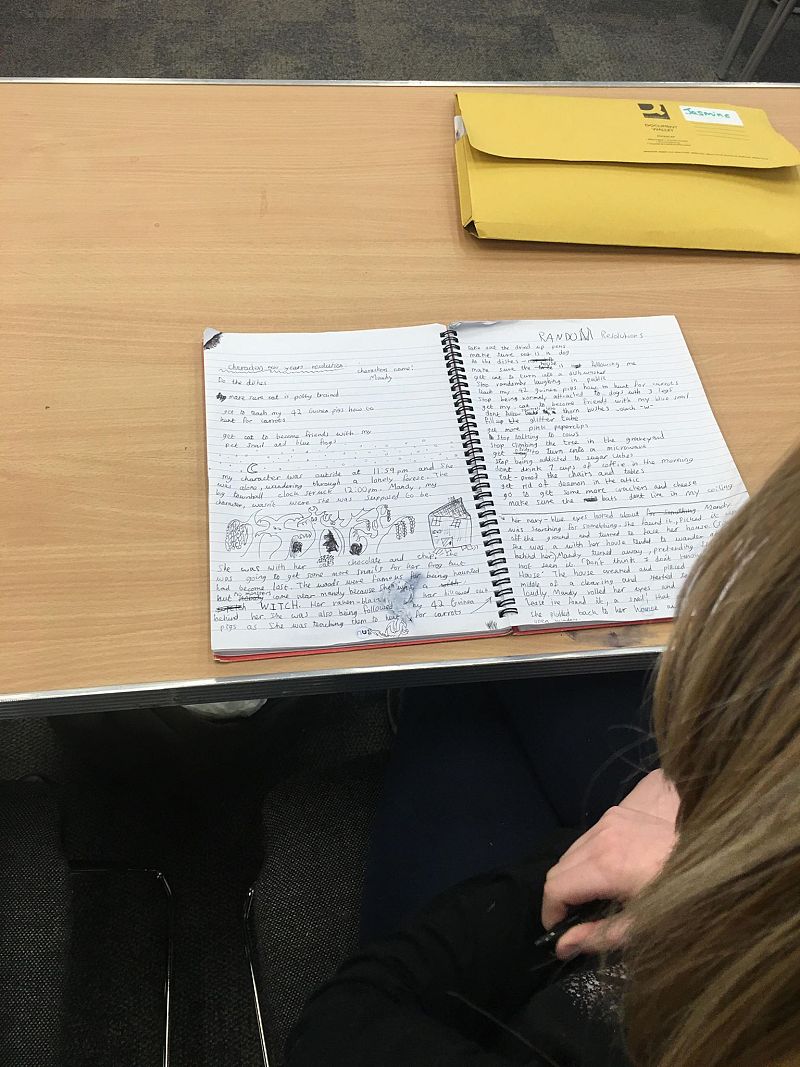 Jasmine
DOCUMENT
WALLET
Characters new years resolution
characters name:
Mandy
Do the dishes
make sure cat is potty trained
get to teach my 42 Guinea pigs how to
hunt for carrots
get cat to become friends with my
pet snail and blue frog!
My character was outside at 11:59pm and she
was alone, wandering through a lonely forest. The
big townhall clock struck 12:00pm. Mandy, my
character, wasn't where she was supposed to be.
She was with her chocolate and chips. She
was going to get some more snails for her frog but
had become lost. The woods were famous for being haunted
but no monsters came near mandy because she was a
WITCH. Her raven-black hair billowed out
behind her. She was also being followed by my 42 Guinea
pigs as. She was teaching them to hunt for carrots
RANDOM Resolutions
take out the dried up pens
make sure cat is a dog
do the dishes
make sure the house is not following me
get cat to turn into a dishwasher
Stop randomly laughing in public
teach my 42 guinea pigs how to hunt for carrots
Stop being normaly attracted to dogs with 3 legs
get my cat to become friends with my blue snail
dont follow thorn bushes
fill up the glitter
get more pink paperclips
Stop talking to cows
Stop climbing the tree in the graveyard
get to turn into a microwave
stop being addicted to sugar cubes
dont drink 7 cups of coffee in the morning
cat-proof the chairs and tables
get rid of deamon in the attic
go to get some more crackers and cheese
make sure the bats dont live in my ceiling
her navy-blue eyes darted about Mandy
was searching for something. She found it, picked it
off the ground and turned to face her house.
She was a with her house tended to wander
behind her. Mandy turned away, pretending
not seen it. "Don't think I don't
House". The house creaked and
middle of a clearing and
loudly Mandy rolled her eyes and
house
She rolled back to her house